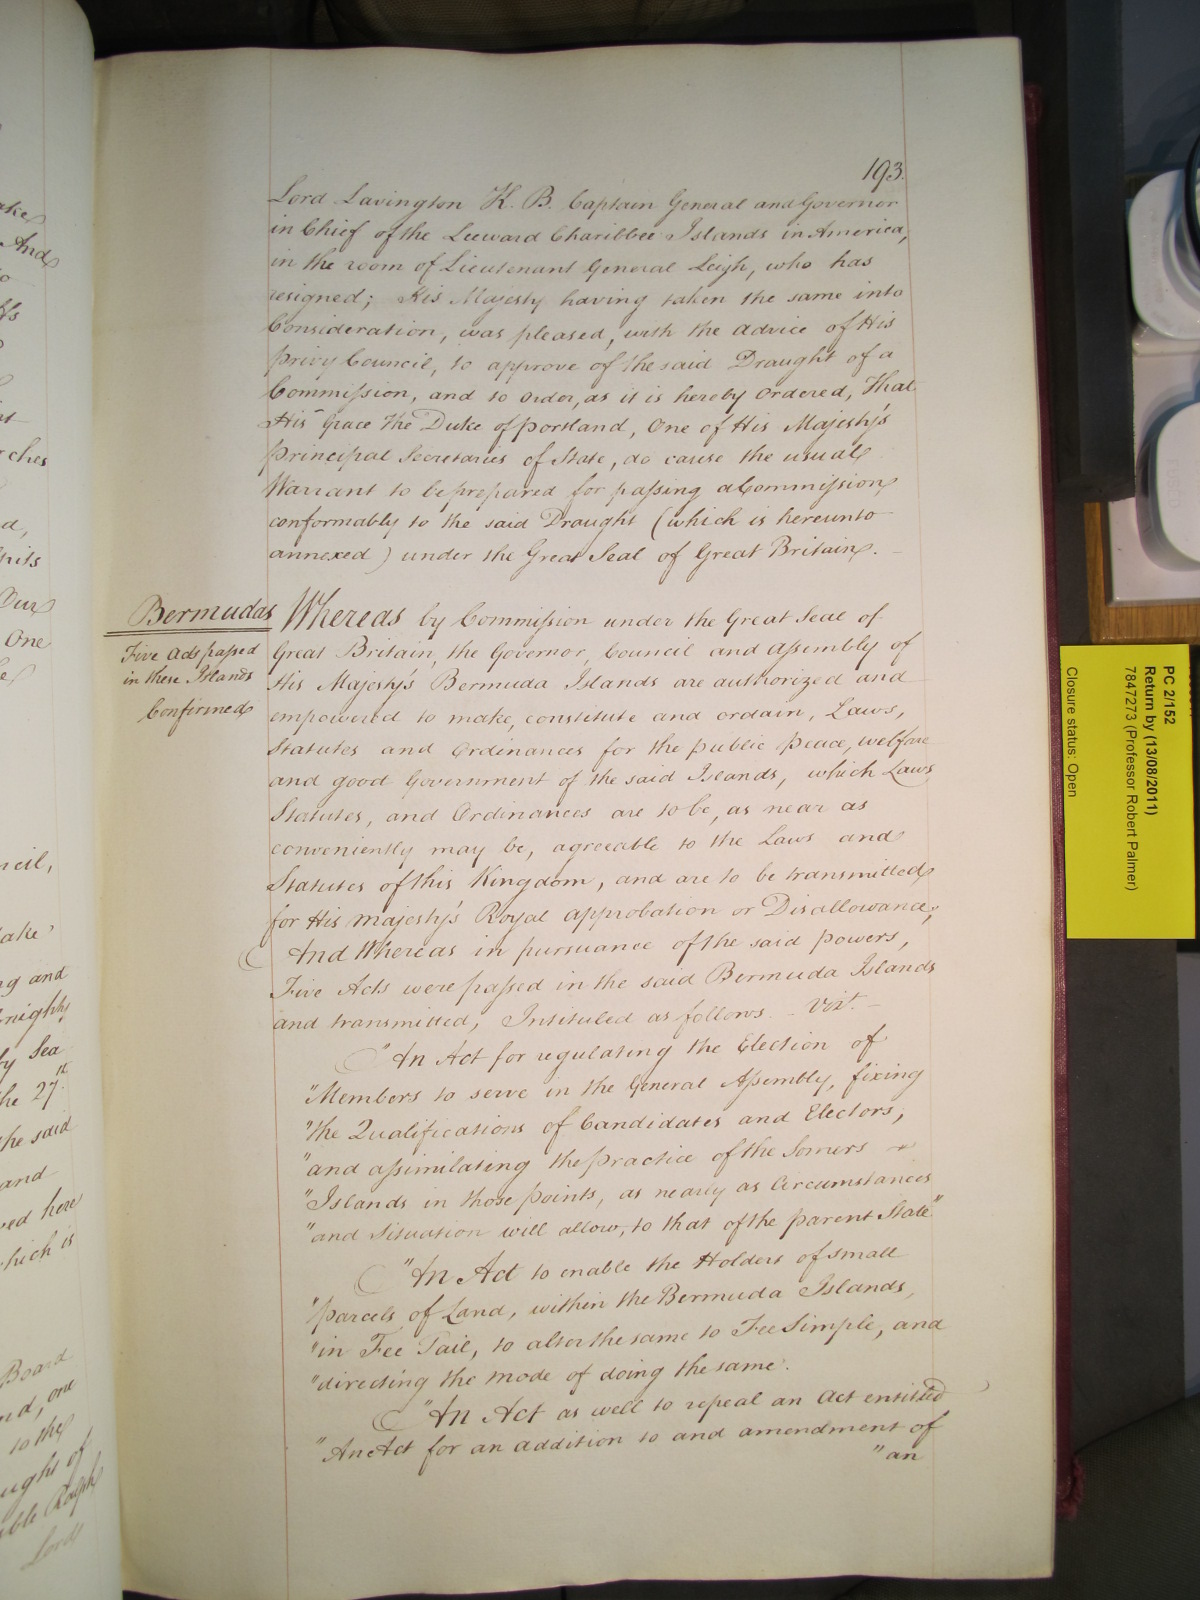 193.
Lord Lavington K. B. Captain General and Governor
in Chief of the Leeward Charibbee Islands in America,
in the room of Lieutenant General Leigh, who has
resigned; His Majesty having taken the same into
Consideration, was pleased, with the advice of His
Privy Council, to approve of the said Draught of a
Commission, and to order, as it is hereby Ordered, That
His Grace The Duke of Portland, One of His Majesty's
Principal Secretaries of State, do cause the usual
Warrant to be prepared for passing a Commission
conformably to the said Draught (which is hereunto
annexed) under the Great Seal of Great Britain.
Bermudas
Five Acts passed
in these Islands
Confirmed
Whereas by Commission under the Great Seal of
Great Britain, the Governor, Council and Assembly of
His Majesty's Bermuda Islands are authorized and
empowered to make, constitute and ordain, Laws,
Statutes and Ordinances for the public Peace, welfare
and good Government of the said Islands, which Laws
Statutes, and Ordinances are to be, as near as
conveniently may be, agreeable to the Laws and
Statutes of this Kingdom, and are to be transmitted
for His Majesty's Royal approbation or Disallowance;
And Whereas in pursuance of the said Powers,
Five Acts were passed in the said Bermuda Islands
and transmitted, Intituled as follows - Vizt.
"An Act for regulating the Election of
"Members to serve in the General Assembly, fixing
"the Qualifications of Candidates and Electors,
"and assimilating the practice of the Somers
"Islands in those points, as nearly as Circumstances
"and Situation will allow, to that of the parent State"
"An Act to enable the Holders of small
"parcels of Land, within the Bermuda Islands,
"in Fee Tail, to alter the same to Fee Simple, and
"directing the mode of doing the same.
"An Act as well to repeal an Act entitled
"An Act for an addition to and amendment of
"an
PC 2/152
Return by (13/08/2011)
7847273 (Professor Robert Palmer)
Closure status: Open
And
ches
hits
One
ncil,
ng and
by Sea
the 27th
the said
and
ved here
which is
Board
nd, one
to the
ughs of
ble Ralph
Lord